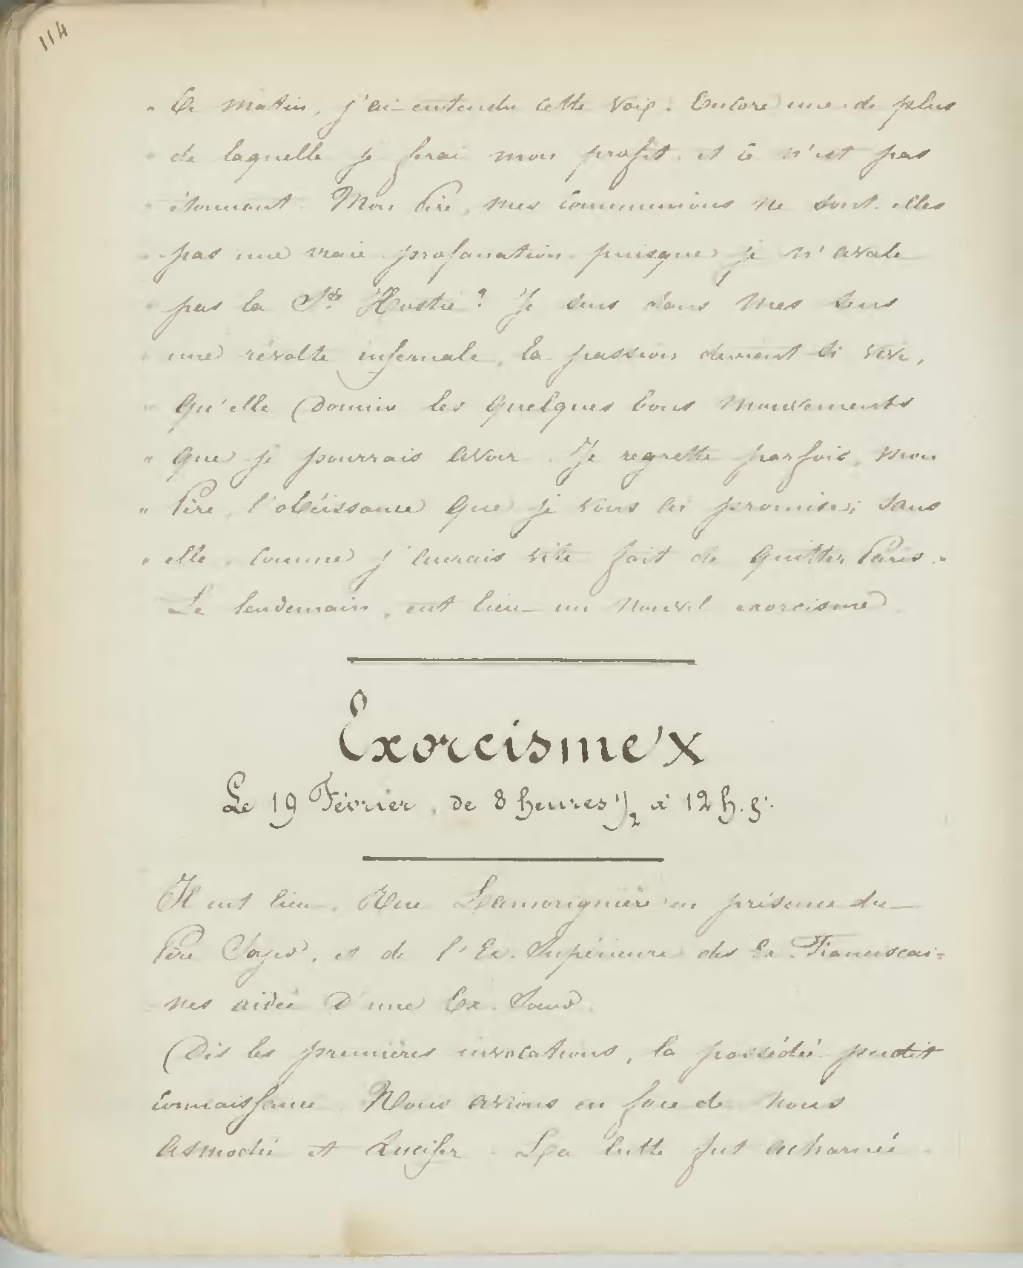 114
" Ce matin, j'ai entendu cette voix. Encore une de plus
" de laquelle je ferai mon profit, et ce n'est pas
" étonnant. Mon Père, mes communions ne sont-elles
" pas une vraie profanation puisque je n'avale
" pas la Ste Hostie ? Je sens dans mes sens
" une révolte infernale, la passion devient si vive,
" qu'elle domine les quelques bons mouvements
" que je pourrais avoir. Je regrette parfois, mon
" Père, l'obéissance que je vous ai promise; sans
" elle, comme j'aurais vite fait de quitter Paris. "
Le lendemain, eut lieu un nouvel exorcisme.
Exorcisme X
Le 19 Février, de 8 heures 1/2 à 12 h.
Il eut lieu, Rue en présence du
Père et de l'Ex. Supérieure des Ex. Franciscai=
nes aidée d'une Ex. Soeur.
Dès les premières invocations, la possédée perdit
connaissance. Nous avions en face de nous
Asmodée et Lucifer. La lutte fut acharnée